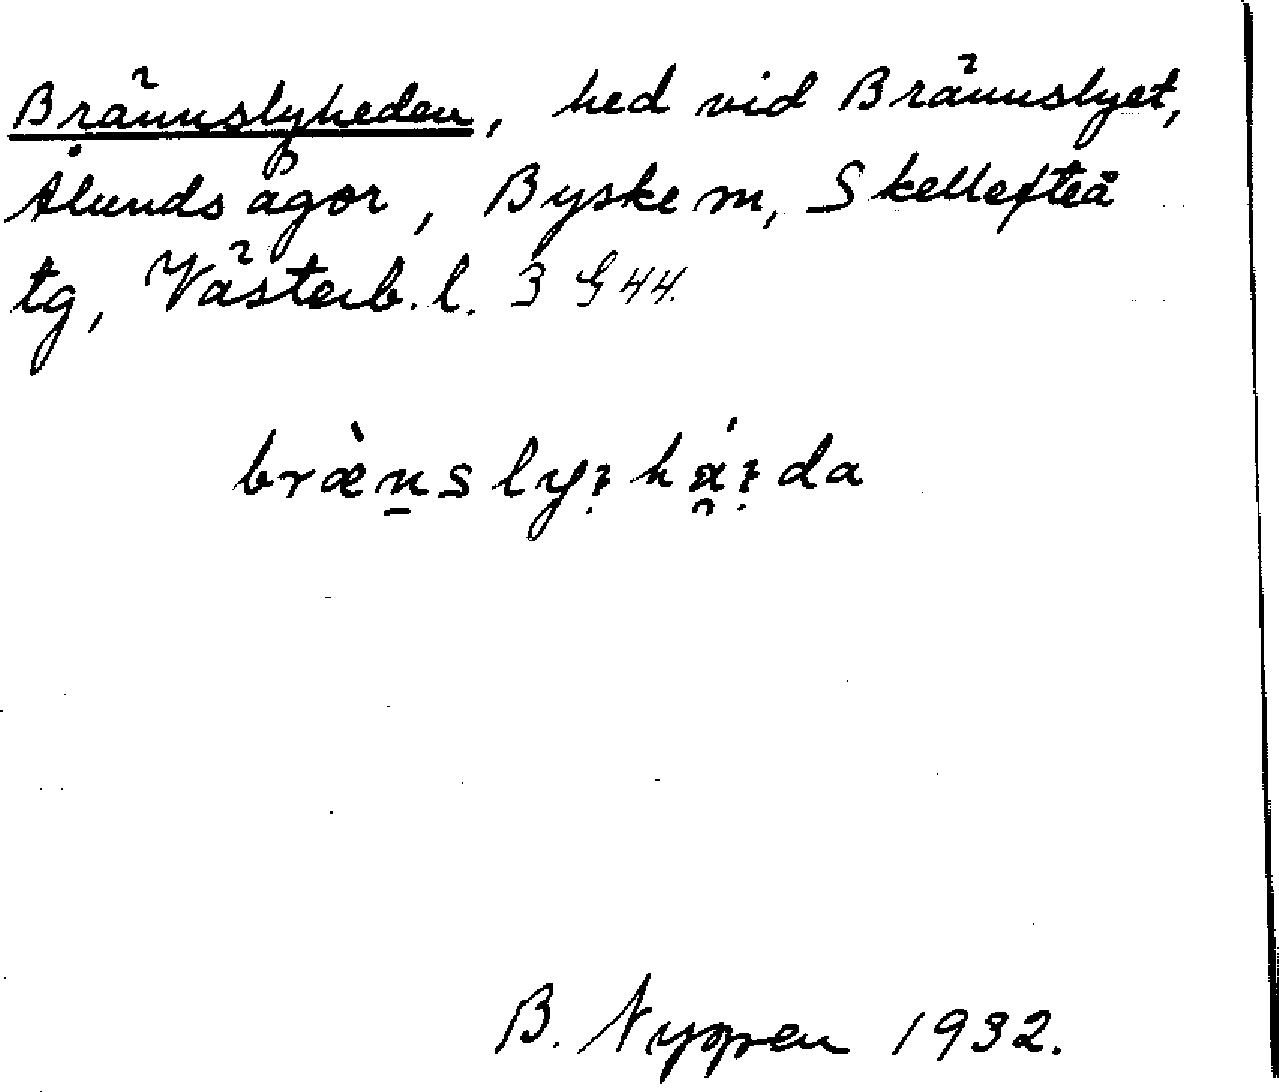 Brännslyheden, hed vid Brännslyet,
Ålunds ägor, Byske sn, Skellefteå
tg, Västerb. l. 3 G 44.
bræ̀n̠slyꝛ há̯ꝛda
B. Nyppen 1932.